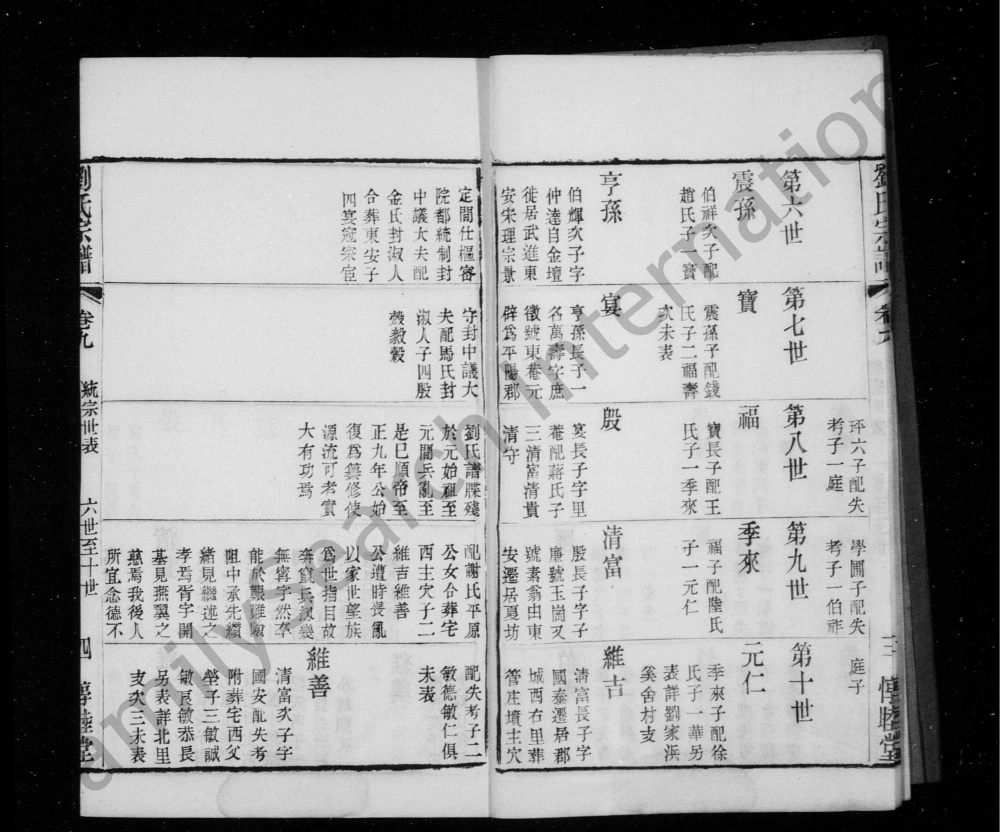 劉氏宗譜
卷九
三
惇睦堂
第六世
震孫
伯祥次子配
趙氏子一寶
亨孫
伯輝次子字
仲達自金壇
徙居武進東
安宋理宗景
定間仕樞密
院都統制封
中議大夫配
金氏封淑人
合葬東安子
四宴寇宗宦
第七世
寶
震孫子配錢
氏子二福壽
次未表
宴
亨孫長子一
名萬壽字庶
徵號東菴元
辟爲平陽郡
守封中議大
夫配馬氏封
淑人子四殷
㲄毅轂
玶六子配失
考子一庭
第八世
福
寶長子配王
氏子一季來
殷
宴長子字里
菴配蔣氏子
三清富清貴
清守
劉氏譜牒殘
於元始祖至
元間兵亂至
是巳順帝至
正九年公始
復爲纂修使
源流可考實
大有功焉
學圃子配失
考子一伯祚
第九世
季來
福子配陸氏
子一元仁
清富
殷長子字子
廉號玉崗又
號素翁由東
安遷居夏坊
配謝氏平原
公女合葬宅
西主穴子二
維吉維善
公遭時喪亂
以家世望族
爲世指目故
無寧宇然卒
能於艱難險
阻中承先纘
緒見繼述之
孝焉胥字開
基見燕翼之
慈焉我後人
所宜念德不
庭子
第十世
元仁
季來子配徐
氏子一華另
表詳劉家浜
奚舍村支
維吉
清富長子字
國泰遷居郡
城西右里葬
管庄墳主穴
配失考子二
敏德敏仁俱
未表
維善
清富次子字
國安配失考
附葬宅西父
塋子三敏誠
敏良敏恭長
另表詳北里
支次三未表
劉氏宗譜
卷九
統宗世表
六世至十世
四
惇睦堂